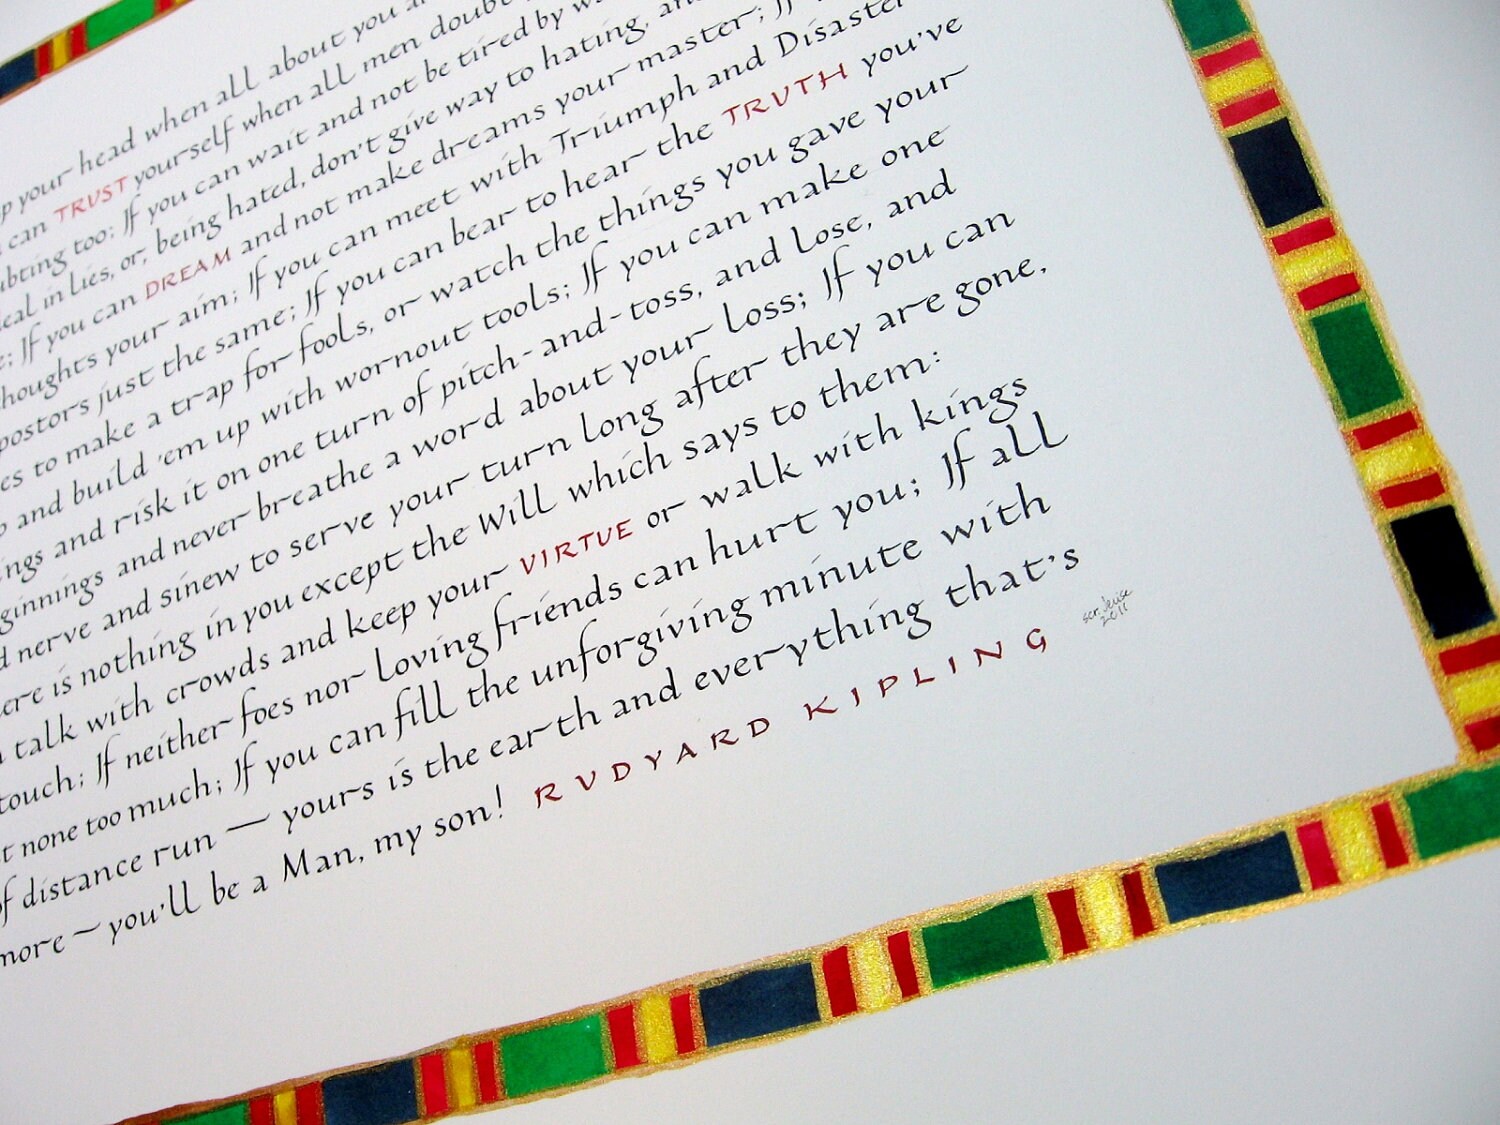 your head when all about you
can TRUST yourself when all men doubt
ubting too; If you can wait and not be tired by
eal in lies, or, being hated, don't give way to hating, an
e; If you can DREAM and not make dreams your master; If
houghts your aim; If you can meet with Triumph and Disaster
postors just the same; If you can bear to hear the TRUTH you've
es to make a trap for fools, or watch the things you gave your
and build 'em up with wornout tools; If you can make one
ngs and risk it on one turn of pitch-and-toss, and lose, and
ginnings and never breathe a word about your loss; If you can
nerve and sinew to serve your turn long after they are gone,
ere is nothing in you except the Will which says to them:
talk with crowds and keep your VIRTUE or walk with kings
touch; If neither foes nor loving friends can hurt you; If all
t none too much; If you can fill the unforgiving minute with
f distance run — yours is the earth and everything that's
more — you'll be a Man, my son! RUDYARD KIPLING
2011